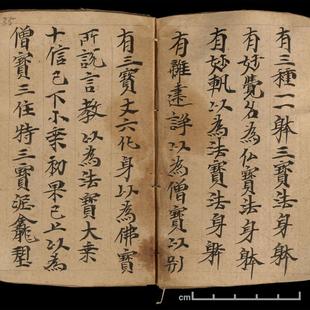 有三種一一躰三寶法身
有妙覺名為仏寶法身躰
有妙軌以為法寶法身躰
有離違諍以為僧寶以別
有三寶丈六化身以為佛寶
所說言教以為法寶大乗
十信已下小乗初果已上以為
僧寶三住持三寶泥龕塑
35
cm